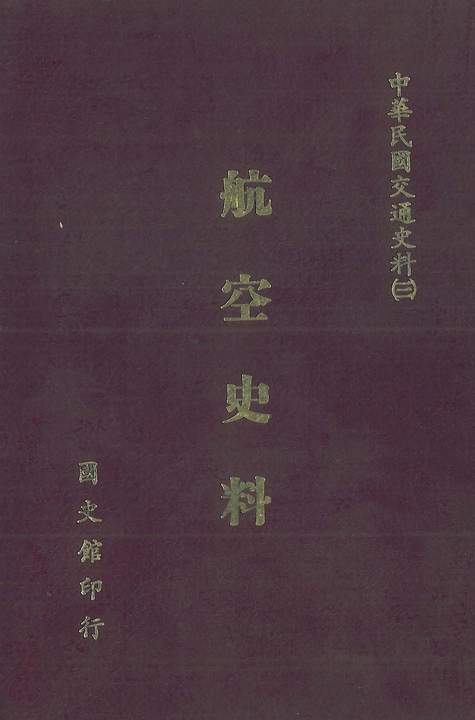 中華民國交通史料㈢
航空史料
國史館印行